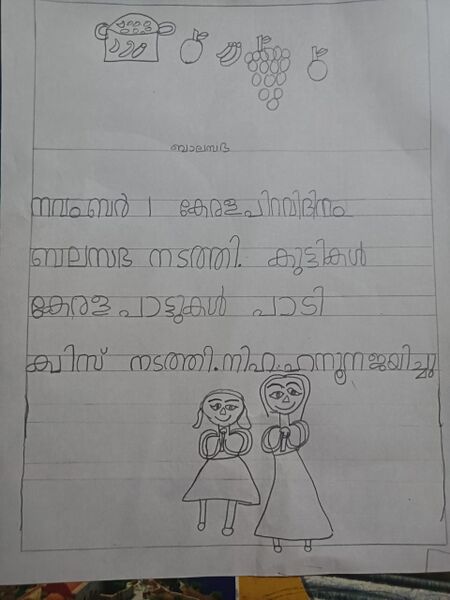 ബാലസഭ
നവംബർ 1 കേരളപിറവിദിനം
ബലസഭ നടത്തി. കുട്ടികൾ
കേരള പാട്ടുകൾ പാടി
ക്വിസ് നടത്തി. നിഹ. ഹന്നൂന ജയിച്ചു